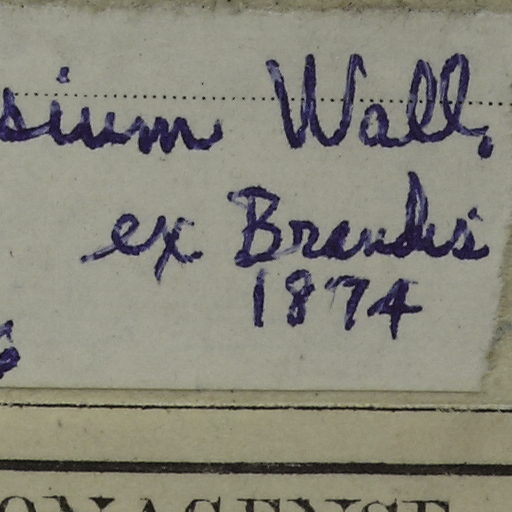 sium Wall.
ex Brandis
1874
ONAGENSE